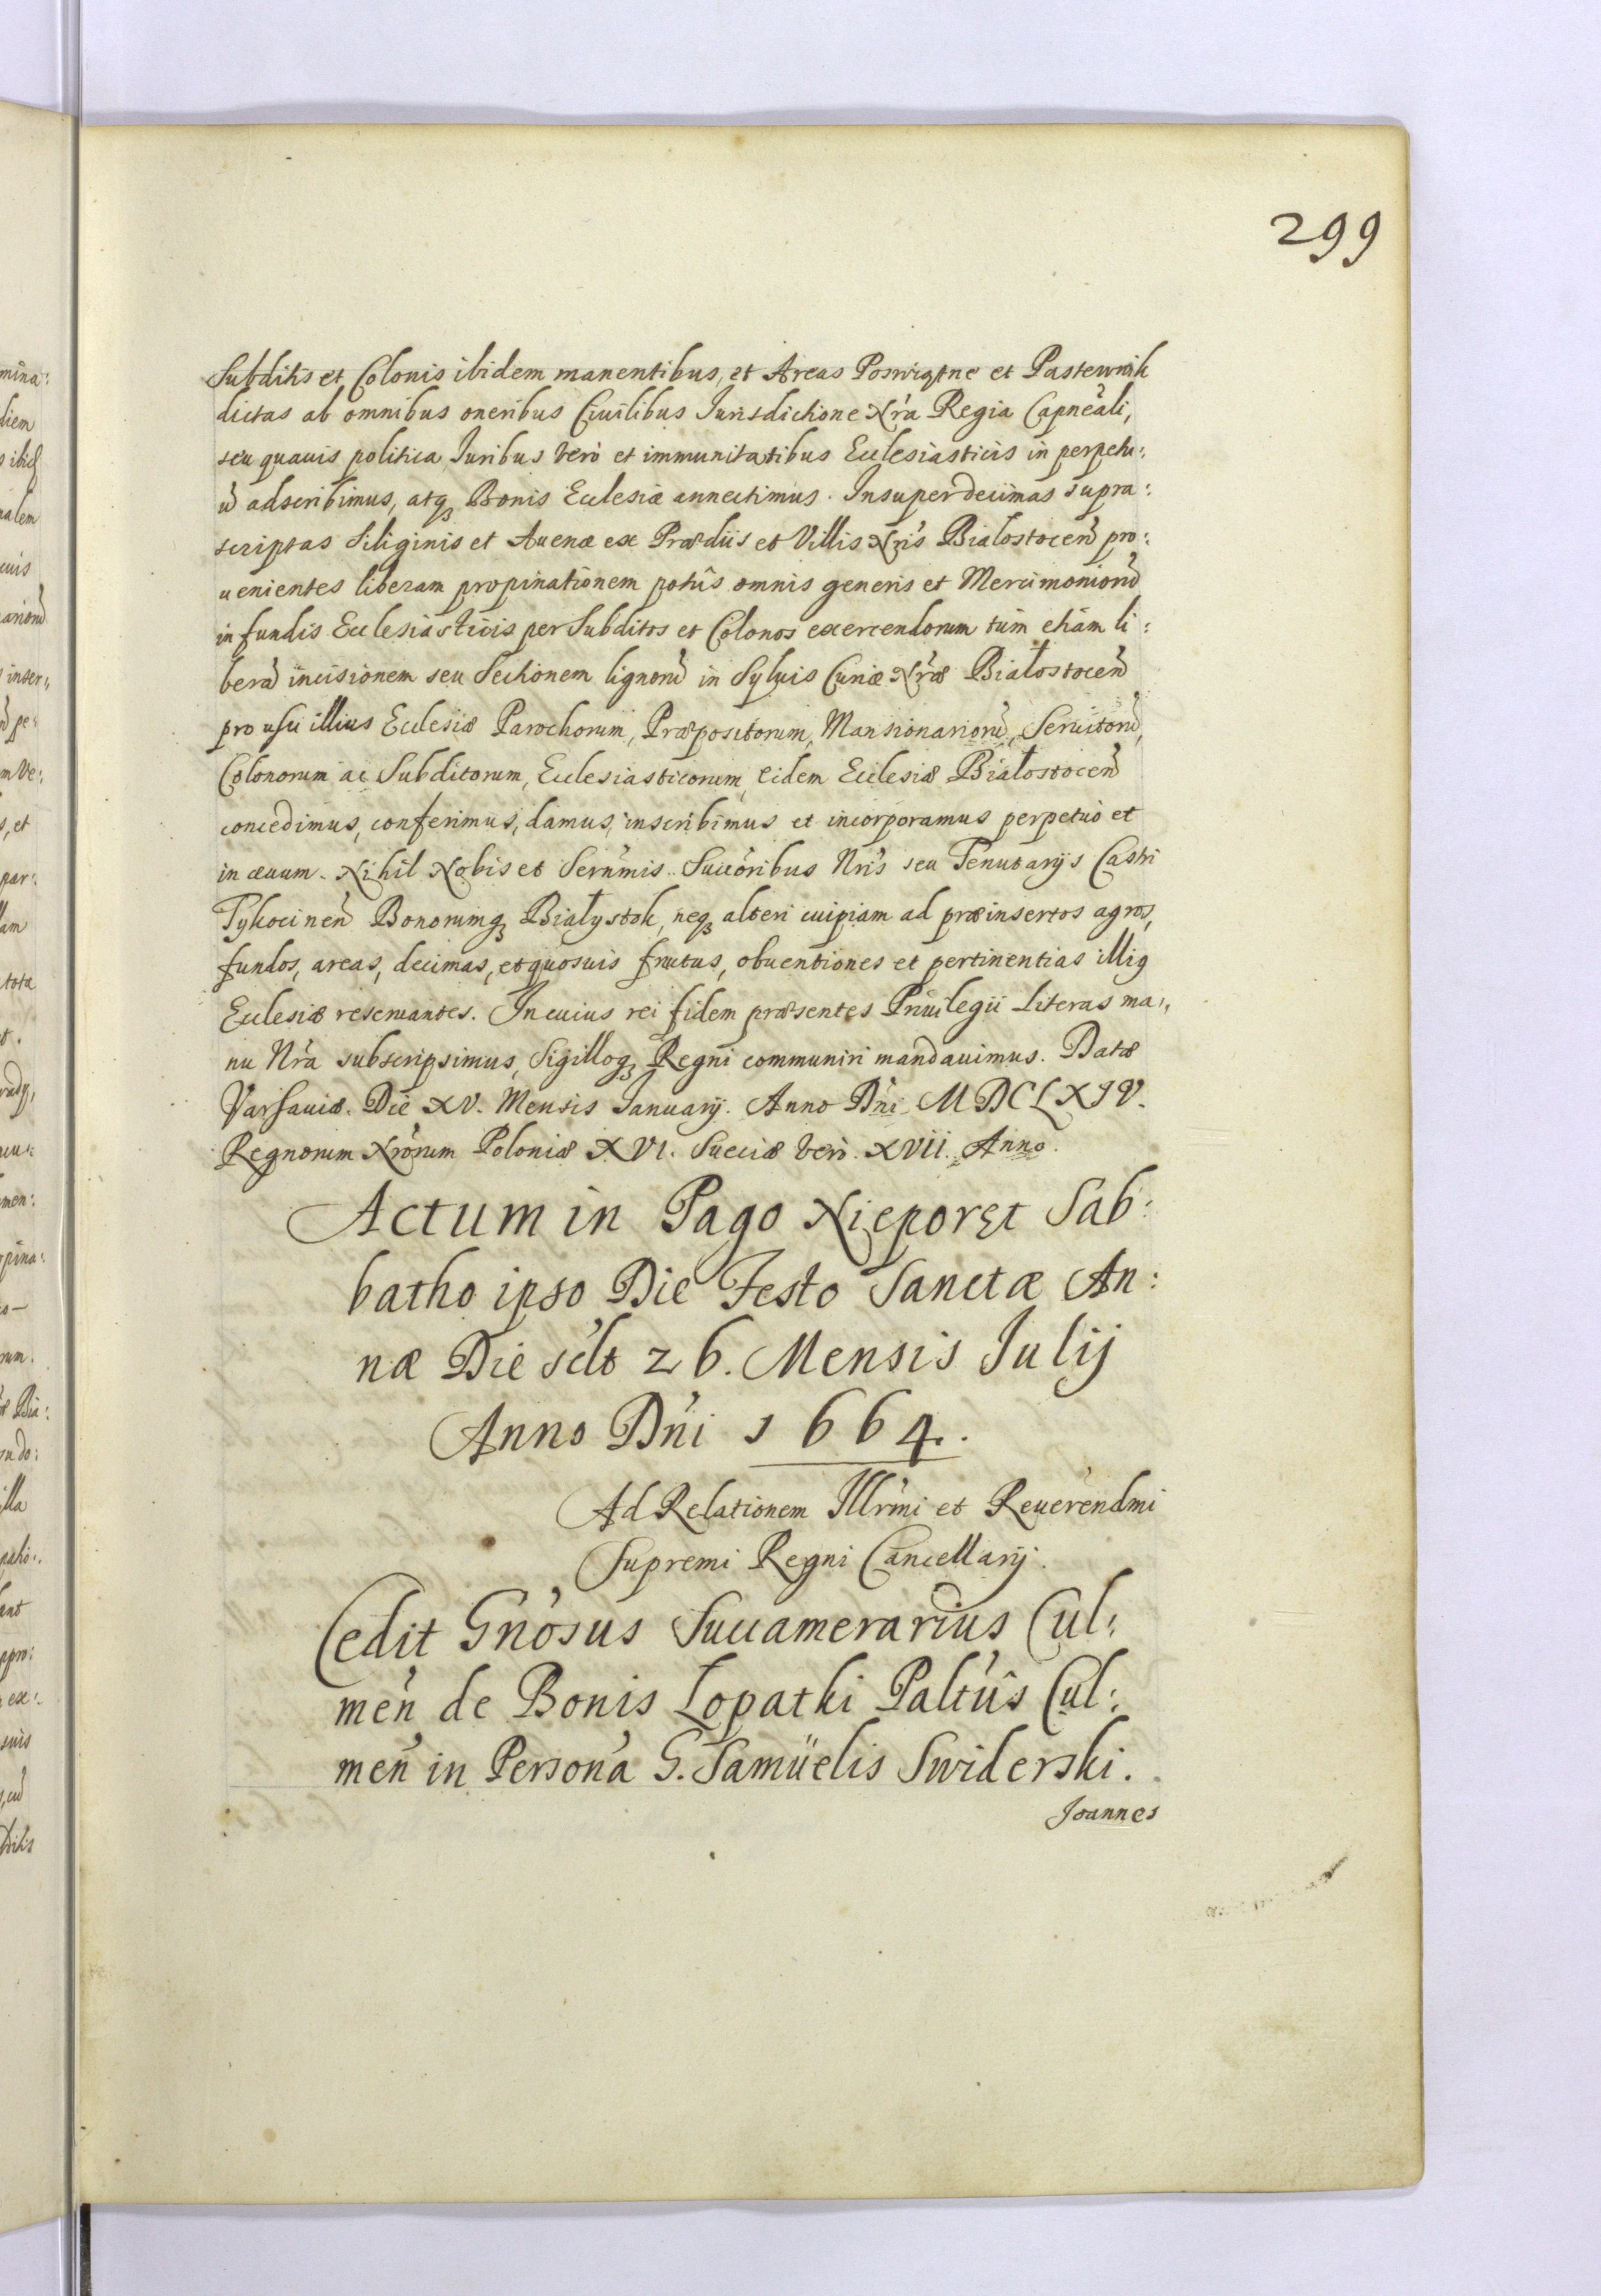 299
Subditis et Colonis ibidem manentibus, et Areas Poswiątne et Pastewnik
dictas ab omnibus oneribus Ciuilibus Iurisdictione Nr̃a Regia Capneali,
seu quauis politica Iuribus verò et immunitatibus Ecclesiasticis in perpetu:
ũ adscribimus, atqȝ Bonis Ecclesiæ annectimus. Insuper decimas supra:
scriptas Siliginis et Auenæ ex Prædiis et Villis Nr̃is Bialostocen̄ pro:
uenientes liberam propinationem potûs omnis generis et Mercimoniorũ
in fundis Ecclesiasticis per Subditos et Colonos exercendorum tùm etiàm li:
berã incisionem seu Sectionem lignorũ in Syluis Curiæ Nr̃æ Białostocen̄
pro usu illius Ecclesiæ Parochorum, Præpositorum, Mansionariorũ, Seruitorũ,
Colonorum ac Subditorum, Ecclesiasticorum, eidem Ecclesiæ Białostocen̄
concedimus, conferimus, damus, inscribimus et incorporamus perpetuò et
in æuum. Nihil Nobis et Serñmis Succoribus Nrĩs seu Tenutarijs Castri
Tykocinen̄ Bonorumqȝ Białystok, neqȝ alteri cuipiam ad præinsertos agros,
fundos, areas, decimas, et quosuis fructus, obuentiones et pertinentias illiꝰ
Ecclesiæ reseruantes. In cuius rei fidem præsentes Priuilegii Literas ma:
nu Nr̃a subscripsimus, Sigilloqȝ Regni communiri mandauimus. Datæ
Varsauiæ. Die XV. Mensis Ianuarij. Anno Dñi MDCLXIV.
Regnorum Nrõrum Poloniæ XVI. Sueciæ verò. XVII. Anno.
Actum in Pago Nieporęt Sab:
batho ipso Die Festo Sanctæ An:
næ Die sclt 26. Mensis Iulij
Anno Dñi 1664.
Ad Relationem Illrmi et Reuerendmi
Supremi Regni Cancellarij.
Cedit Gnosus Succamerarius Cul:
men̄ de Bonis Lopatki Paltus̃ Cul:
men̄ in Personã G. Samüelis Swiderski.
Joannes